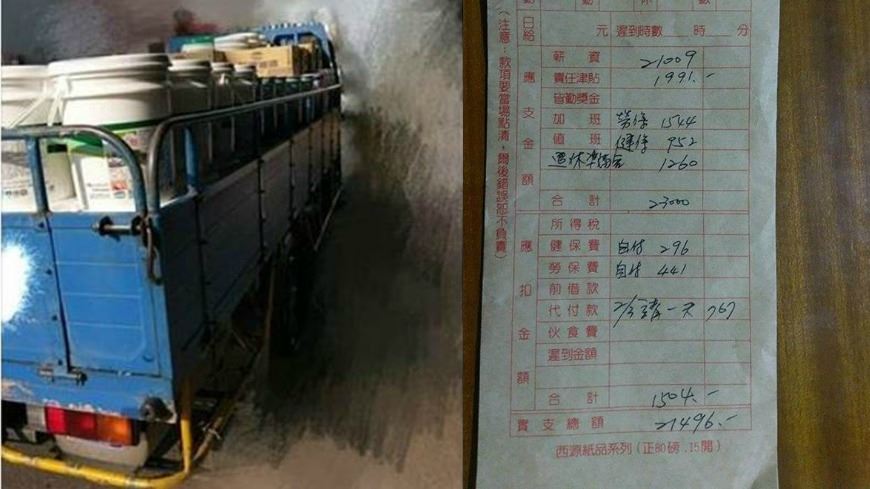 日給　元　遲到時數　時　分
薪資　21009
責任津貼　1991.-
皆勤獎金
加班　勞保 1544
值班　健保 952
退休準備金　1260
合計　23000
應支金額
所得稅
健保費　自付 296
勞保費　自付 441
前借款
代付款　請一天 767
伙食費
遲到金額
合計　1504.-
應扣金額
實支總額　21496.-
西源紙品系列(正80磅.15開)
(注意：款項要當場點清，爾後錯誤恕不負責)